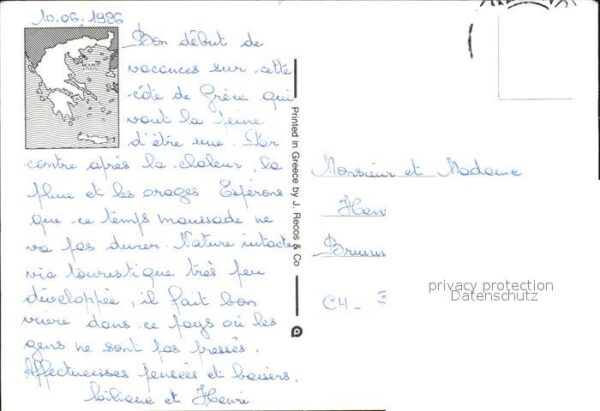 10.06.1986
Bon début de
vacances sur cette
côte de Grèce qui
vaut la peine
d'être vue. Par
contre après la chaleur, la
pluie et les orages. Espérons
que ce temps maussade ne
va pas durer. Nature intacte
vie touristique très peu
développée, il fait bon
vivre dans ce pays où les
gens ne sont pas pressés.
Affectueuses pensées et baisers.
Liliane et Henri
Printed in Greece by J. Recos & Co
Monsieur et Madame
CH-
privacy protection
Datenschutz